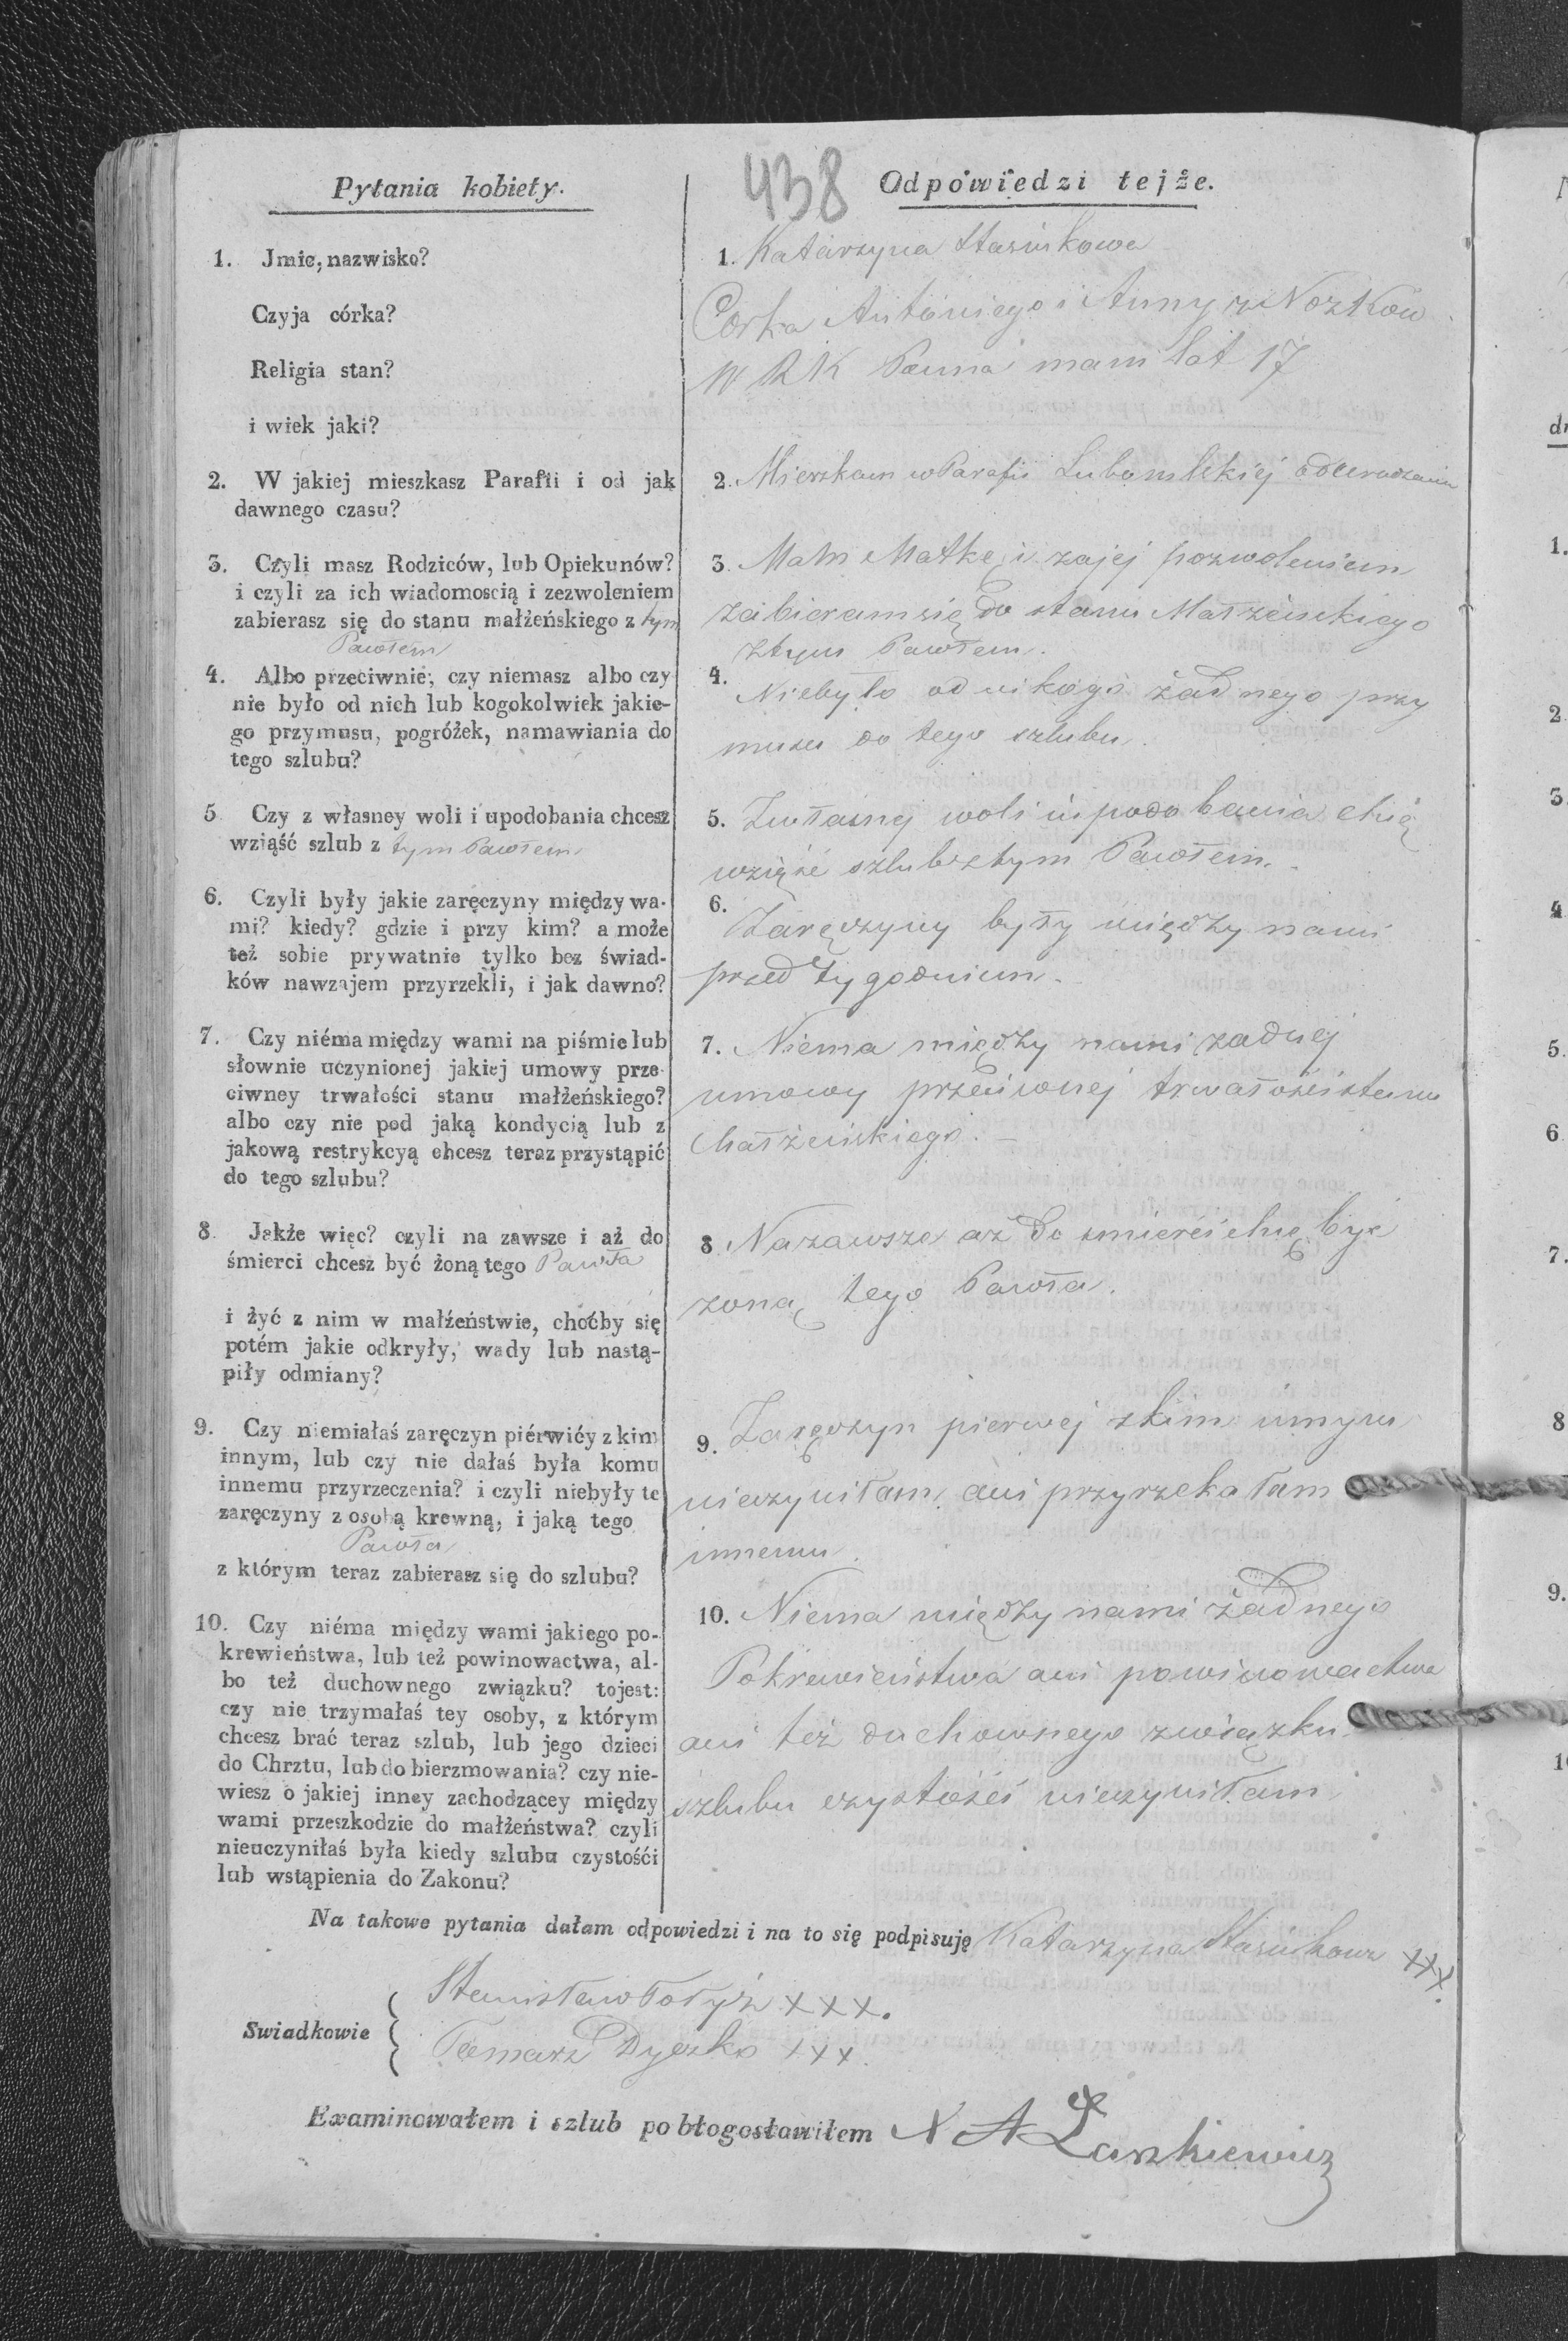 438
Pytania kobiety.
1. Jmie, nazwisko?
Czyja córka?
Religia stan?
i wiek jaki?
2. W jakiej mieszkasz Parafii i od jak
dawnego czasu?
3. Czyli masz Rodziców, lub Opiekunów?
i czyli za ich wiadomoscią i zezwoleniem
zabierasz się do stanu małżeńskiego z tym
Pawłem
4. Albo przeciwnie, czy niemasz albo czy
nie było od nich lub kogokolwiek jakie-
go przymusu, pogróżek, namawiania do
tego szlubu?
5 Czy z własney woli i upodobania chcesz
wziąść szlub z tym Pawłem
6. Czyli były jakie zaręczyny między wa-
mi? kiedy? gdzie i przy kim? a może
też sobie prywatnie tylko bez świad-
ków nawzajem przyrzekli, i jak dawno?
7. Czy niéma między wami na piśmie lub
słownie uczynionej jakiej umowy prze-
ciwney trwałości stanu małżeńskiego?
albo czy nie pod jaką kondycią lub z
jakową restrykcyą chcesz teraz przystąpić
do tego szlubu?
8. Jakże więc? czyli na zawsze i aż do
śmierci chcesz być żoną tego Pawła
i żyć z nim w małżeństwie, choćby się
potém jakie odkryły, wady lub nastą-
piły odmiany?
9. Czy niemiałaś zaręczyn piérwiéy z kim
innym, lub czy nie dałaś była komu
innemu przyrzeczenia? i czyli niebyły te
zaręczyny z osobą krewną, i jaką tego
Pawła
z którym teraz zabierasz się do szlubu?
10. Czy niéma między wami jakiego po-
krewieństwa, lub też powinowactwa, al-
bo też duchownego związku? tojest:
czy nie trzymałaś tey osoby, z którym
chcesz brać teraz szlub, lub jego dzieci
do Chrztu, lub do bierzmowania? czy nie-
wiesz o jakiej inney zachodzącey między
wami przeszkodzie do małżeństwa? czyli
nieuczyniłaś była kiedy szlubu czystośći
lub wstąpienia do Zakonu?
Odpowiedzi tejże.
1. Katarzyna Stasiukowa
Corka Antoniego i Anny z Nozkow
W R K Panna mam lat 17
2. Mieszkam w Parafii Lubomlskiej od urodzenia
3. Mam Matkę i zajej pozwoleniem
zabieram się do stanu Małżenskiego
ztym Pawłem.
4. Niebyło od nikogo żadnego przy
musu do tego szlubu.
5. Zwłasnej woli i upodobania chcę
wziąść szlub ztym Pawłem.
6. Zaręczyny były między nami
przed tygodniem.
7. Niema między nami żadnej
umowy przeciwnej trwałości stanu
Małżeńskiego. –
8 Nazawsze aż do smierci chcę być
zoną tego Pawła.
9. Zaręczyn pierwej zkim innym
nieczyniłam, ani przyrzekałam
innemu.
10. Niema między nami żadnego
Pokrewieństwa ani powinowactwa
ani też duchownego związku
szlubu czystości nieczyniłam
Na takowe pytania dałam odpowiedzi i na to się podpisuję Katarzyna Stasiukowa XXX.
Swiadkowie
Stanisław XXX.
Tomasz Dyczko XXX.
Examinowałem i szlub pobłogosławiłem X A Łaszkiewicz
1.
2
3
4
5.
6
7.
8
9.